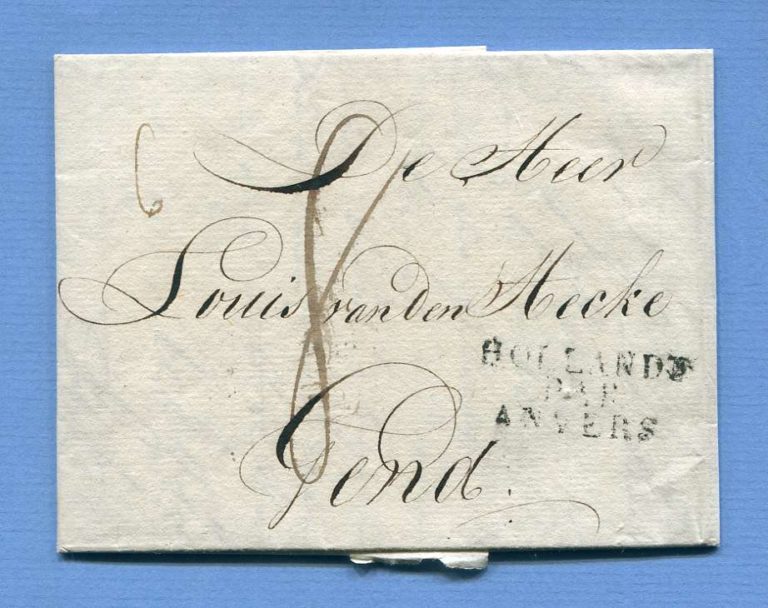 6
8
De Heer
Louis van den Hecke
HOLLANDE
PAR
ANVERS
Gend.